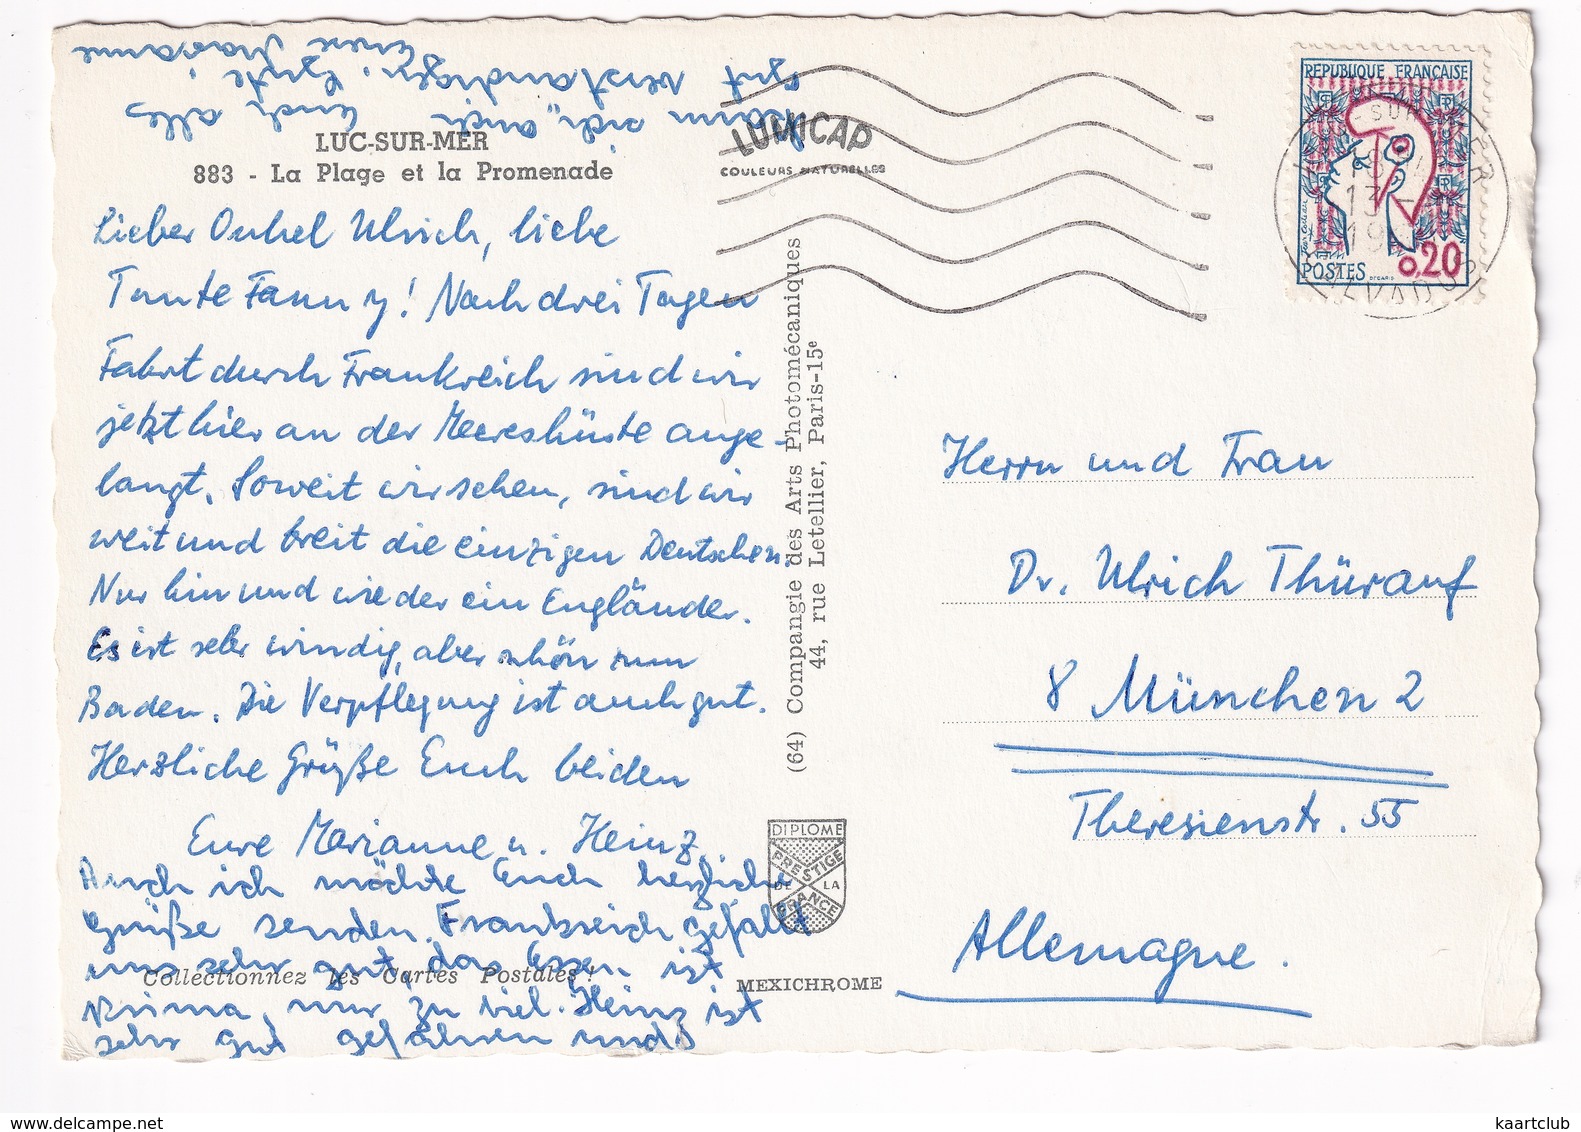 LUC-SUR-MER
883 - La Plage et la Promenade
Lieber Onkel Ulrich, liebe
Tante Fanny! Nach drei Tagen
Fahrt durch Frankreich sind wir
jetzt hier an der Meeresküste ange-
langt. Soweit wir sehen, sind wir
weit und breit die einzigen Deutschen.
Nur hin und wieder ein Engländer.
Es ist sehr windig, aber schön zum
Baden. Die Verpflegung ist auch gut.
Herzliche Grüße Euch beiden
Eure Marianne u. Heinz.
Auch ich möchte Euch herzliche
Grüße senden. Frankreich gefällt
uns sehr gut, das Essen ist
prima, nur zu viel. Heinz ist
sehr gut gefahren und
kann sich auch alles
gut verständigen.
Eure Marianne
Collectionnez les Cartes Postales !
(64) Compangie des Arts Photomécaniques
44, rue Letellier, Paris-15e
DIPLOME
PRESTIGE
DE LA
FRANCE
MEXICHROME
LUMICAP
COULEURS NATURELLES
REPUBLIQUE FRANÇAISE
POSTES
0,20
SUR MER
13 -
19
CALVADOS
Herrn und Frau
Dr. Ulrich Thürauf
8 München 2
Theresienstr. 55
Allemagne.
kaartclub